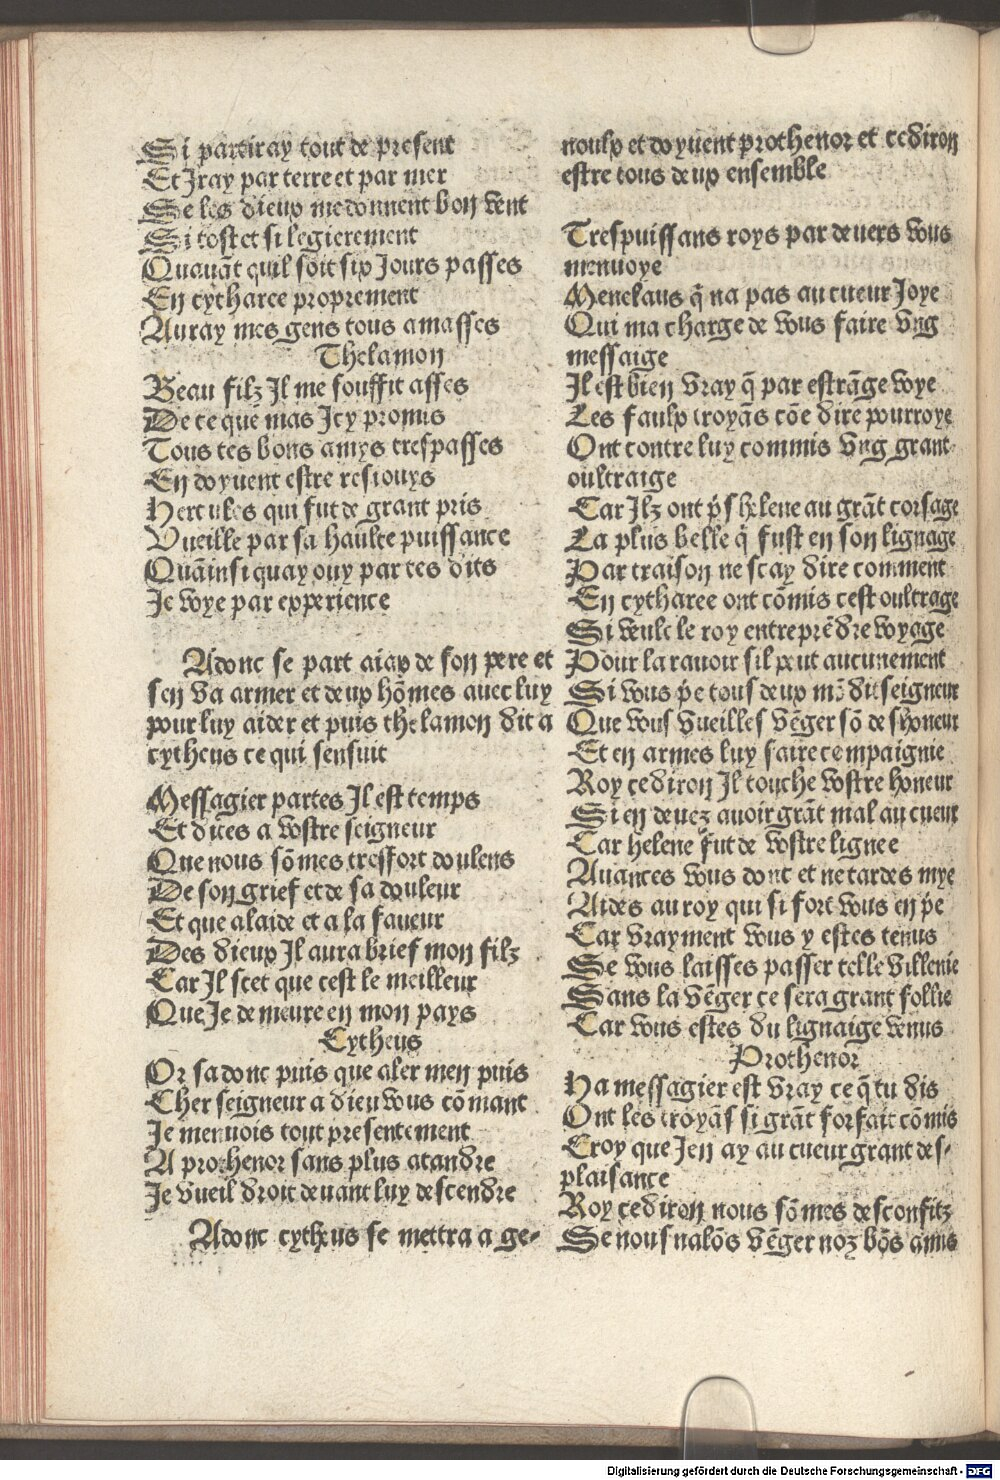 Si partiray tout de present
Et Jray par terre et par mer
Se les dieux me donnent bon vent
Si tost et si legierement
Quauāt quil soit six Jours passes
En cytharee proprement
Auray mes gens tous amasses
Thelamon
Beau filz Jl me souffit asses
De ce que mas Jcy promis
Tous tes bons amys trespasses
En doyuent estre resiouys
Hercules qui fut de grant pris
Vueille par sa haulte puissance
Quāinsi quay ouy par tes dits
Je voye par experience
Adonc se part aiax de son pere et
sen va armer et deux hōmes auec luy
pour luy aider et puis thelamon dit a
cytheus ce qui sensuit
Messagier partes Jl est temps
Et dites a vostre seigneur
Que nous sōmes tresfort doulens
De son grief et de sa douleur
Et que alaide et a la faueur
Des dieux Jl aura brief mon filz
Car Jl scet que cest le meilleur
Que Je demeure en mon pays
Cytheus
Or sa donc puis que aler men puis
Cher seigneur a dieu vous cōmant
Je men vois tout presentement
A prothenor sans plus atandre
Je vueil droit deuant luy descendre
Adonc cytheus se mettra a ge-
noulx et doyuent prothenor et cediron
estre tous deux ensemble
Trespuissans roys par deuers vous
menuoye
Menelaus q̄ na pas au cueur Joye
Qui ma charge de vous faire vng
messaige
Jl est bien vray q̄ par estrāge voye
Les faulx troyās cōe dire pourroye
Ont contre luy commis vng grant
oultraige
Car Jlz ont p̄s helene au grāt corsage
La plus belle q̄ fust en son lignage
Par traison ne scay dire comment
En cytharee ont cōmis cest oultrage
Si veult le roy entreprēdre voyage
Pour la rauoir sil peut aucunement
Si vous p̄e tous deux mō dit seigneur
Que vous vueilles vēger sō deshoneur
Et en armes luy faire compaignie
Roy cediron Jl touche vostre honeur
Si en deuez auoir grāt mal au cueur
Car helene fut de vostre lignee
Auances vous dont et ne tardes mye
Aides au roy qui si fort vous en p̄e
Car vrayment vous y estes tenus
Se vous laisses passer telle villenie
Sans la vēger ce sera grant follie
Car vous estes du lignaige venus
Prothenor
Ha messagier est vray ce q̄ tu dis
Ont les troyās si grāt forfait cōmis
Croy que Jen ay au cueur grant des-
plaisance
Roy cediron nous sōmes desconfitz
Se nous nalōs vēger noz bōs amis
Digitalisierung gefördert durch die Deutsche Forschungsgemeinschaft - DFG